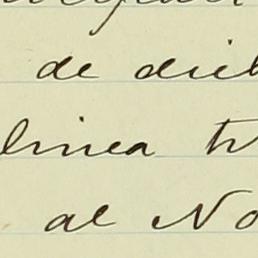 de dich
linea tr
al No